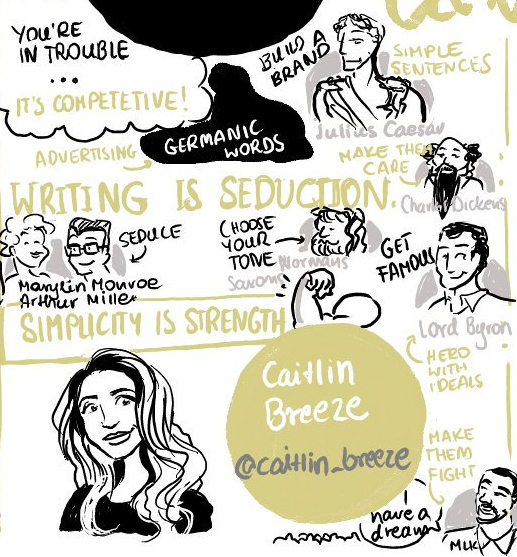 YOU'RE
IN TROUBLE
...
IT'S COMPETETIVE!
ADVERTISING
GERMANIC
WORDS
BUILD A
BRAND
SIMPLE
SENTENCES
Julius Caesar
MAKE THEM
CARE
Charles Dickens
WRITING IS SEDUCTION.
SEDUCE
Marylin Monroe
Arthur Miller
CHOOSE
YOUR
TONE
Normans
Saxons
GET
FAMOUS
Lord Byron
HERO
WITH
IDEALS
SIMPLICITY IS STRENGTH
Caitlin
Breeze
@caitlin_breeze
MAKE
THEM
FIGHT
I have a
dream
MLK